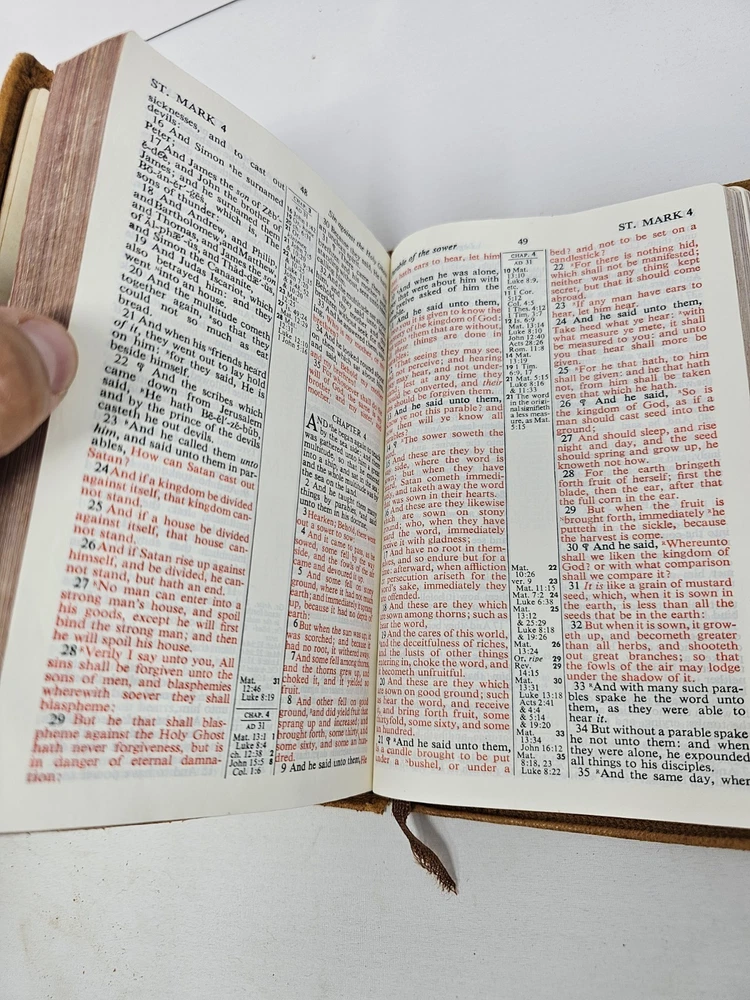 ST. MARK 4
48
sicknesses, and to cast out
devils:
16 And Simon he surnamed
Peter;
17 And James the son of Zĕb'-
ē-dēe, and John the brother of
James; and he surnamed them
Bō-ăn-ẽr'-ġēs, which is, The
sons of thunder:
18 And Andrew, and Philip,
and Bartholomew, and Matthew,
and Thomas, and James the son
and Simon the Canaanite,
19 And Judas Iscariot, which
also betrayed him: and they
went into an house.
20 And the multitude cometh
together again, so that they
could not so much as eat
bread.
21 And when his friends heard
of it, they went out to lay hold
on him: for they said, He is
beside himself.
22 ¶ And the scribes which
came down from Jerusalem
said, He hath Bē-ĕl'-zĕ-bŭb,
and by the prince of the devils
casteth he out devils.
23 And he called them unto
him, and said unto them in par-
ables, How can Satan cast out
Satan?
24 And if a kingdom be divided
against itself, that kingdom can-
not stand.
25 And if a house be divided
against itself, that house can-
not stand.
26 And if Satan rise up against
himself, and be divided, he can-
not stand, but hath an end.
27 No man can enter into a
strong man's house, and spoil
his goods, except he will first
bind the strong man; and then
he will spoil his house.
28 Verily I say unto you, All
sins shall be forgiven unto the
sons of men, and blasphemies
wherewith soever they shall
blaspheme:
29 But he that shall blas-
pheme against the Holy Ghost
hath never forgiveness, but is
in danger of eternal damna-
tion:
Mat. 31
12:46
Luke 8:19
CHAP. 4
AD 31
Mat. 13:1 1
Luke 8:4
ch. 12:38 2
John 15:5 8
Col. 1:6
Sin against the Holy
CHAPTER 4
AND he began again to teach
by the sea side: and
into a ship, and sat in the sea;
and the whole multitude was by
the sea on the land.
2 And he taught them many
things by parables, and said
unto them in his doctrine,
3 Hearken; Behold, there went
out a sower to sow:
4 And it came to pass, as he
sowed, some fell by the way
side, and the fowls of the air
came and devoured it up.
5 And some fell on stony
ground, where it had not much
earth; and immediately it sprang
up, because it had no depth of
earth:
6 But when the sun was up, it
was scorched; and because it
had no root, it withered away.
7 And some fell among thorns,
and the thorns grew up, and
choked it, and it yielded no
fruit.
8 And other fell on good
ground, and did yield fruit that
sprang up and increased; and
brought forth, some thirty, and
some sixty, and some an hun-
dred.
9 And he said unto them, He
Parable of the sower
49
ST. MARK 4
hath ears to hear, let him
And when he was alone,
that were about him with
twelve asked of him the
And he said unto them,
you it is given to know the
of the kingdom of God:
unto them that are without,
things are done in
That seeing they may see,
and not perceive; and hearing
may hear, and not under-
lest at any time they
should be converted, and their
should be forgiven them.
And he said unto them,
ye not this parable? and
then will ye know all
14 ¶ The sower soweth the
And these are they by the
side, where the word is
but when they have
Satan cometh immedi-
ately, and taketh away the word
that was sown in their hearts.
And these are they likewise
which are sown on stony
ground; who, when they have
heard the word, immediately
receive it with gladness;
And have no root in them-
selves, and so endure but for a
time: afterward, when affliction
or persecution ariseth for the
word's sake, immediately they
are offended.
18 And these are they which
are sown among thorns; such as
hear the word,
19 And the cares of this world,
and the deceitfulness of riches,
and the lusts of other things
entering in, choke the word, and
it becometh unfruitful.
20 And these are they which
are sown on good ground; such
as hear the word, and receive
it, and bring forth fruit, some
thirtyfold, some sixty, and some
an hundred.
21 ¶ And he said unto them,
Is a candle brought to be put
under a bushel, or under a
CHAP. 4
AD 31
10 Mat.
13:10
Luke 8:9,
etc.
11 1 Cor.
5:12
Col. 4:5
1 Thes. 4:12
1 Tim. 3:7
12 Is. 6:9
Mat. 13:14
Luke 8:10
John 12:40
Acts 28:26
Rom. 11:8
14 Mat.
13:19
19 1 Tim.
6:9, 17
21 Mat. 5:15
Luke 8:16
& 11:33
21 The word
in the orig-
inal signifieth
a less meas-
ure, as Mat.
5:15
Mat. 22
10:26
ver. 9 23
Mat. 11:15
Mat. 7:2 24
Luke 6:38
Mat. 25
13:12
& 25:29
Luke 8:18
& 19:26
Mat. 26
13:24
Or, ripe 29
Rev. 29
14:15
Mat. 30
13:31
Luke 13:18
Acts 2:41
& 4:4
& 5:14
& 19:20
Mat. 33
13:34
John 16:12
Mat. 35
8:18, 23
Luke 8:22
bed? and not to be set on a
candlestick?
22 For there is nothing hid,
which shall not be manifested;
neither was any thing kept
secret, but that it should come
abroad.
23 If any man have ears to
hear, let him hear.
24 And he said unto them,
Take heed what ye hear: with
what measure ye mete, it shall
be measured to you: and unto
you that hear shall more be
given.
25 For he that hath, to him
shall be given: and he that hath
not, from him shall be taken
even that which he hath.
26 ¶ And he said, So is
the kingdom of God, as if a
man should cast seed into the
ground;
27 And should sleep, and rise
night and day, and the seed
should spring and grow up, he
knoweth not how.
28 For the earth bringeth
forth fruit of herself; first the
blade, then the ear, after that
the full corn in the ear.
29 But when the fruit is
brought forth, immediately he
putteth in the sickle, because
the harvest is come.
30 ¶ And he said, Whereunto
shall we liken the kingdom of
God? or with what comparison
shall we compare it?
31 It is like a grain of mustard
seed, which, when it is sown in
the earth, is less than all the
seeds that be in the earth:
32 But when it is sown, it grow-
eth up, and becometh greater
than all herbs, and shooteth
out great branches; so that
the fowls of the air may lodge
under the shadow of it.
33 And with many such para-
bles spake he the word unto
them, as they were able to
hear it.
34 But without a parable spake
he not unto them: and when
they were alone, he expounded
all things to his disciples.
35 And the same day, when